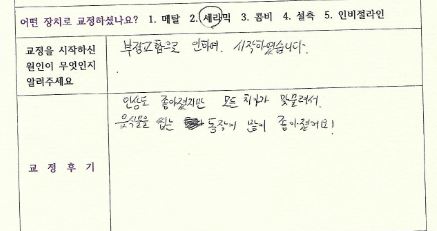 어떤 장치로 교정하셨나요? 1. 메탈 2. 세라믹 3. 콤비 4. 설측 5. 인비절라인
교정을 시작하신
원인이 무엇인지
알려주세요
부정교합으로 인하여, 시작하였습니다.
교 정 후 기
인상도 좋아졌지만 모든 치아가 맞물려서
음식물을 씹는 동작이 많이 좋아졌어요!